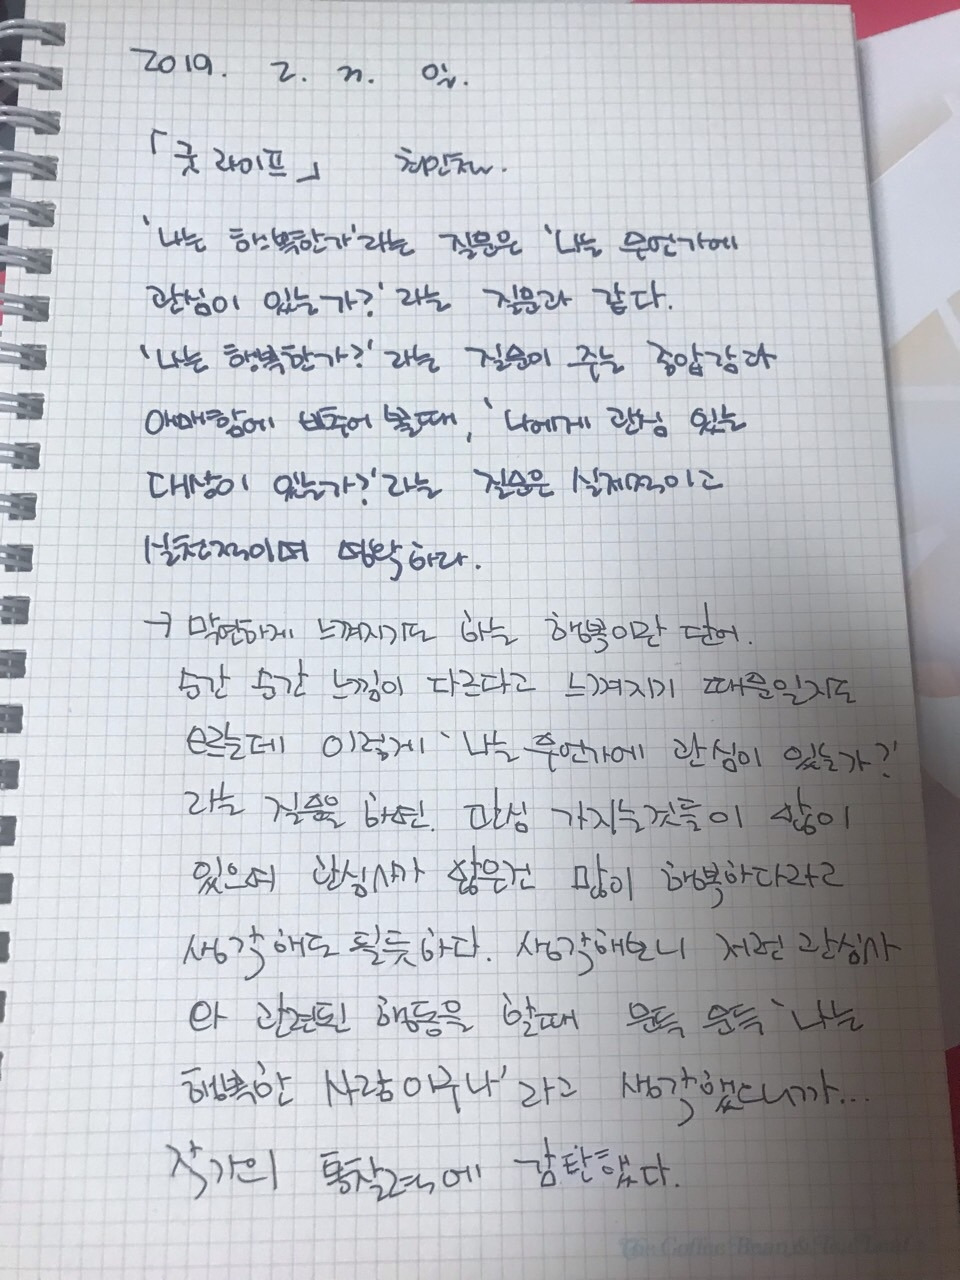 2019. 2. 21. 일.
「굿 라이프」 최인철.
'나는 행복한가'라는 질문은 '나는 무언가에
관심이 있는가?'라는 질문과 같다.
'나는 행복한가?'라는 질문이 주는 중압감과
애매함에 비추어 볼때, '나에게 관심 있는
대상이 있는가?'라는 질문은 실제적이고
실천적이며 명확하다.
→ 막연하게 느껴지기도 하는 행복이란 단어.
순간 순간 느낌이 다르다고 느껴지기 때문일지도
모르는데 이렇게 '나는 무언가에 관심이 있는가?'
라는 질문을 하면. 관심 가지는것들이 많이
있으며 관심사가 많은건 많이 행복하다라고
생각해도 될듯하다. 생각해보니 저런 관심사
와 관련된 행동을 할때 문득 문득 '나는
행복한 사람이구나'라고 생각했으니까...
작가의 통찰력에 감탄했다.
The Coffee Bean & Tea Leaf